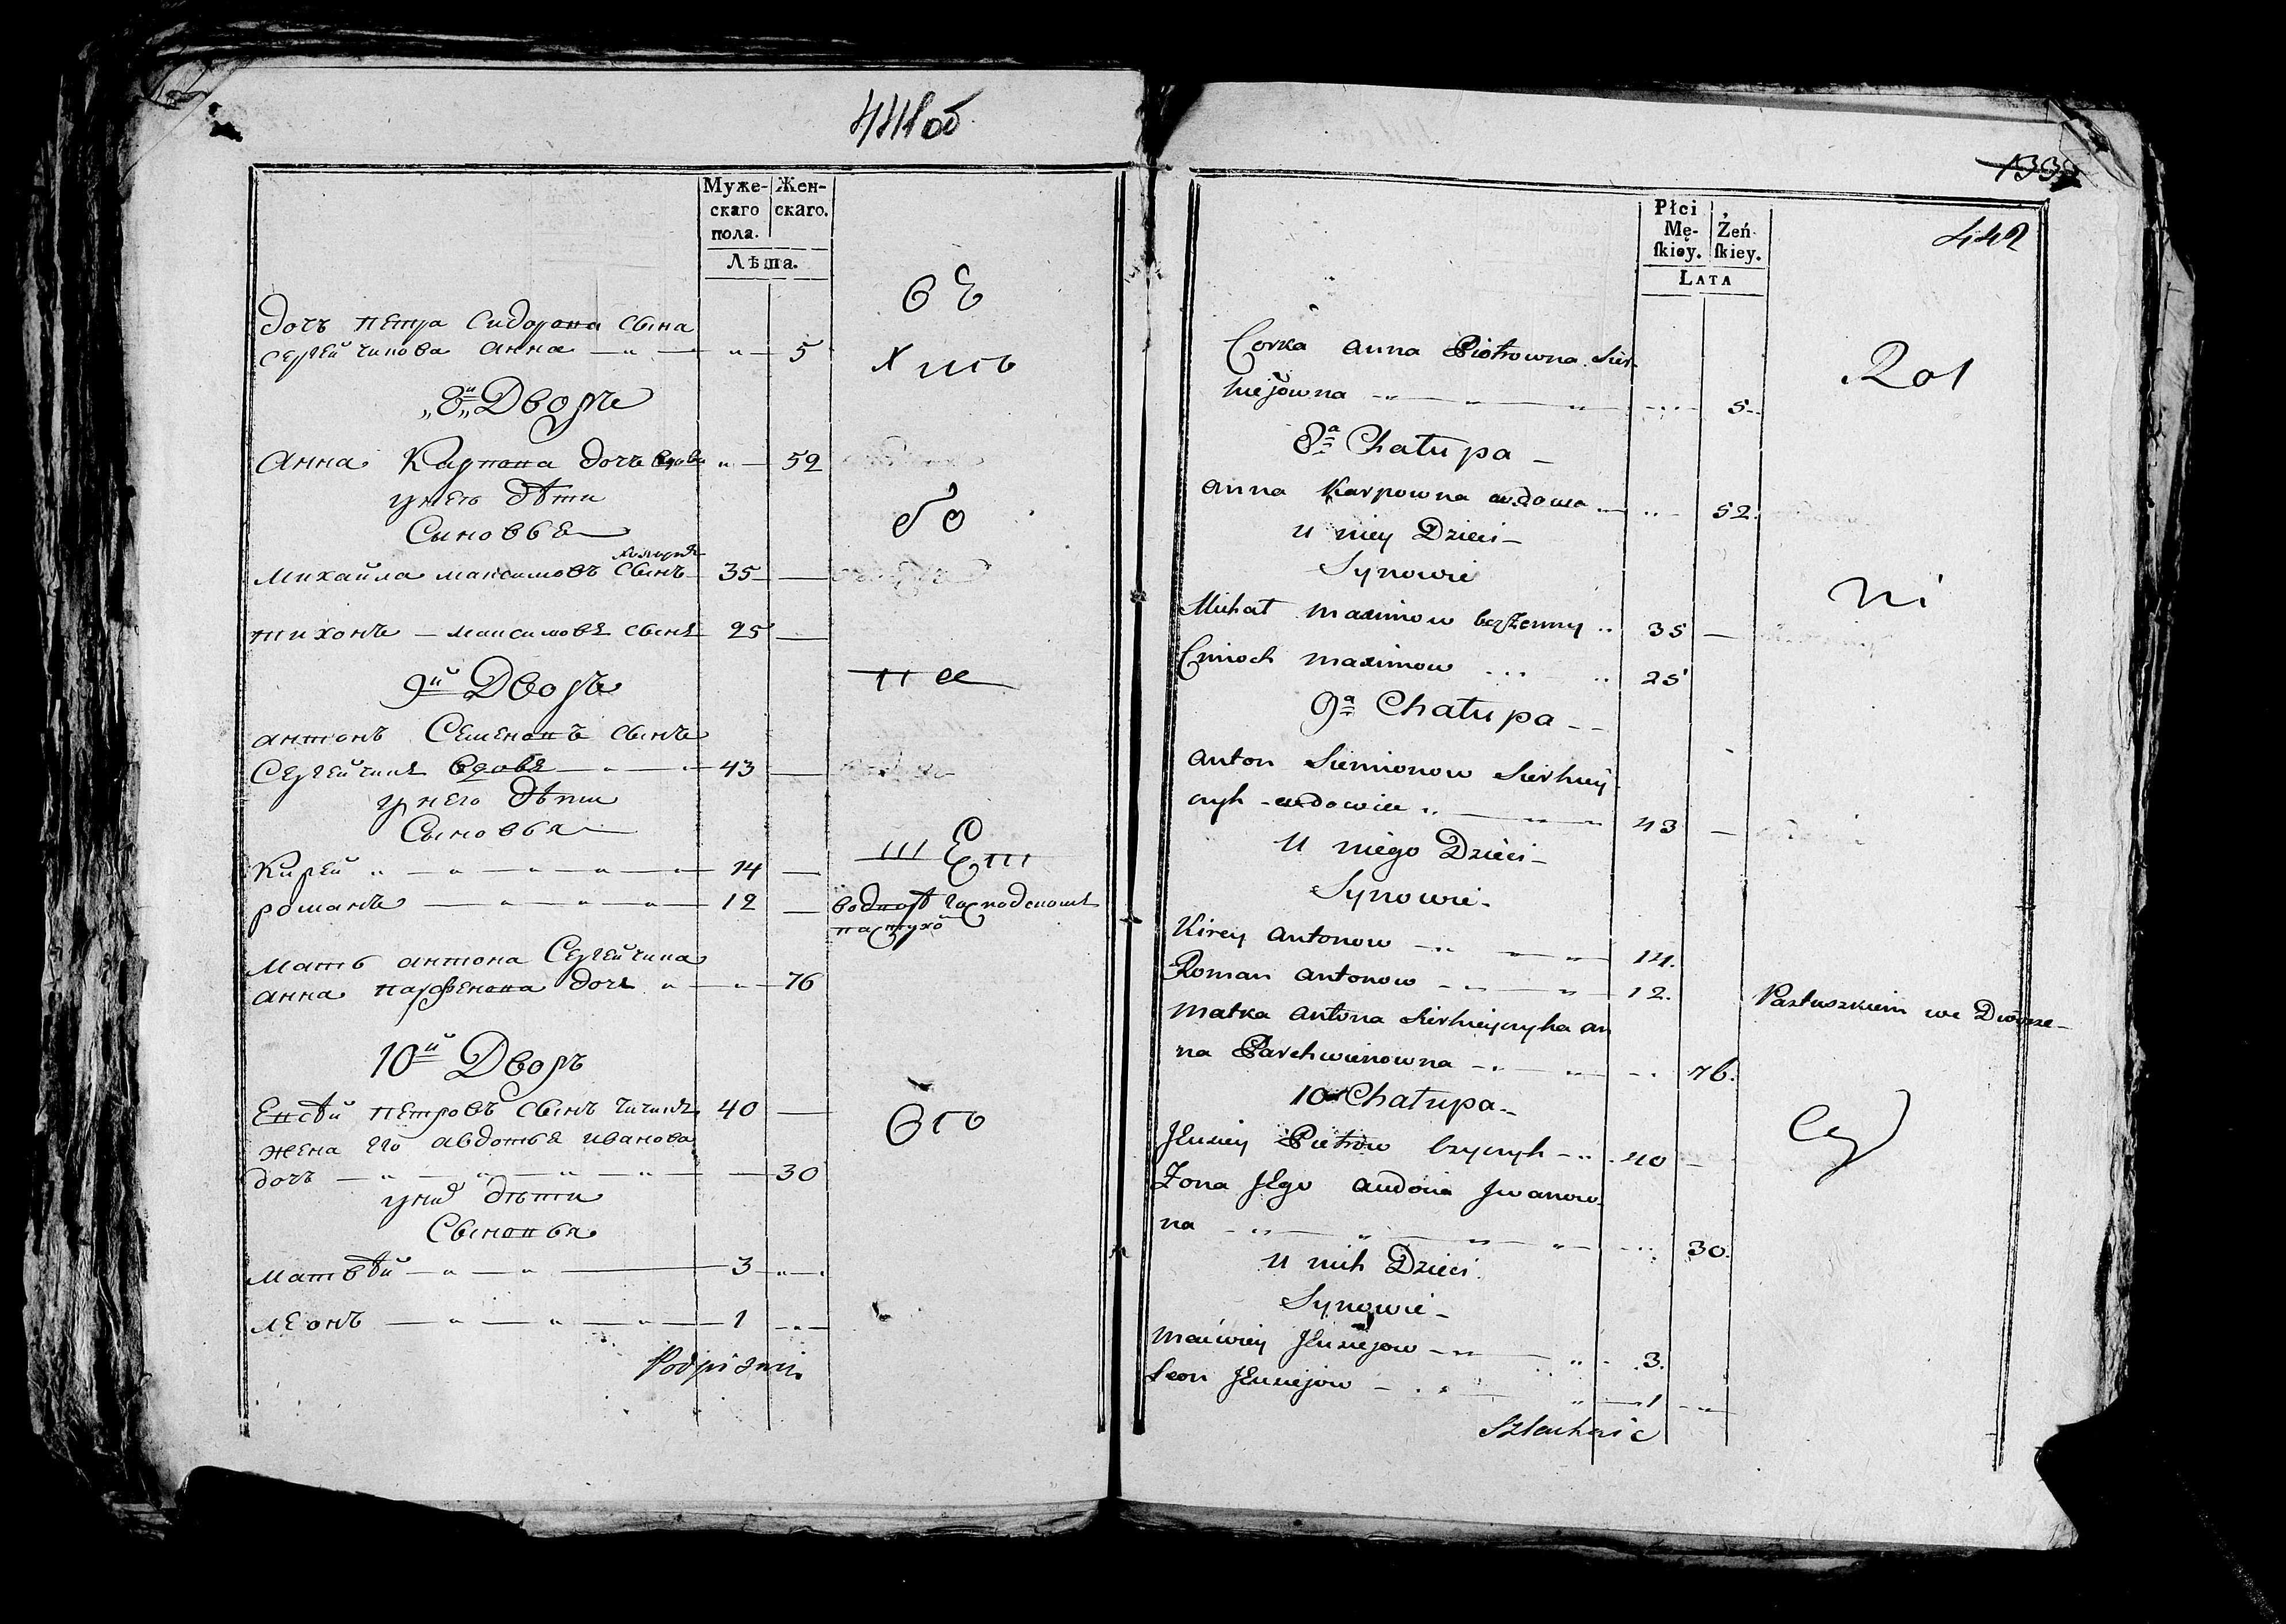 441 об
Муже-
скаго
пола.
Жен-
скаго.
Лѣта.
в Е
дочь петра Сидорова сына
сергейчикова анна 5
Хить
„8й„ Дворъ
Анна Карпова дочь вдова 52
у нея дѣти
Сыновья
михайла максимовъ сынъ 35
тихонъ максимовъ сынъ 25
9й Дворъ
антонъ Семеновъ сынъ
Сергейчикъ вдовъ 43
у него дѣти
Сыновья
Кирей 14
романъ 12
мать антона Сергейчика
анна парфенова дочь 76
10й Дворъ
Евсѣй петровъ сынъ чичикъ 40
жена его авдотья иванова
дочь 30
у нихъ дѣти
Сыновья
матвѣй 3
леонъ 1
1339
442
Płci
Mę-
ſkiey.
Żeń-
ſkiey.
LATA
Corka anna Piotrowna Sier-
hiejowna 5
Rol
8a Chałupa
anna Karpowna wdowa 52
u niey Dzieci
Synowie
ni
Michał maximow bezżenny 35
maximow 25
9a Chałupa
anton Siemionow Sierhiey-
czyk wdowiec 43
U niego Dzieci
Synowie
Kirey antonow 14
Roman antonow 12 Pastuszkiem we Dworze
matka antona Sierhieyczyka an
na Parchwienowna 76
10 Chałupa
Jewsiey Pietrow czyczyk 40
Zona Jego audocia Jwanow-
na 30
u nich Dzieci
Synowie
maćwiey Jewsiejow 3
Leon Jewsiejow 1